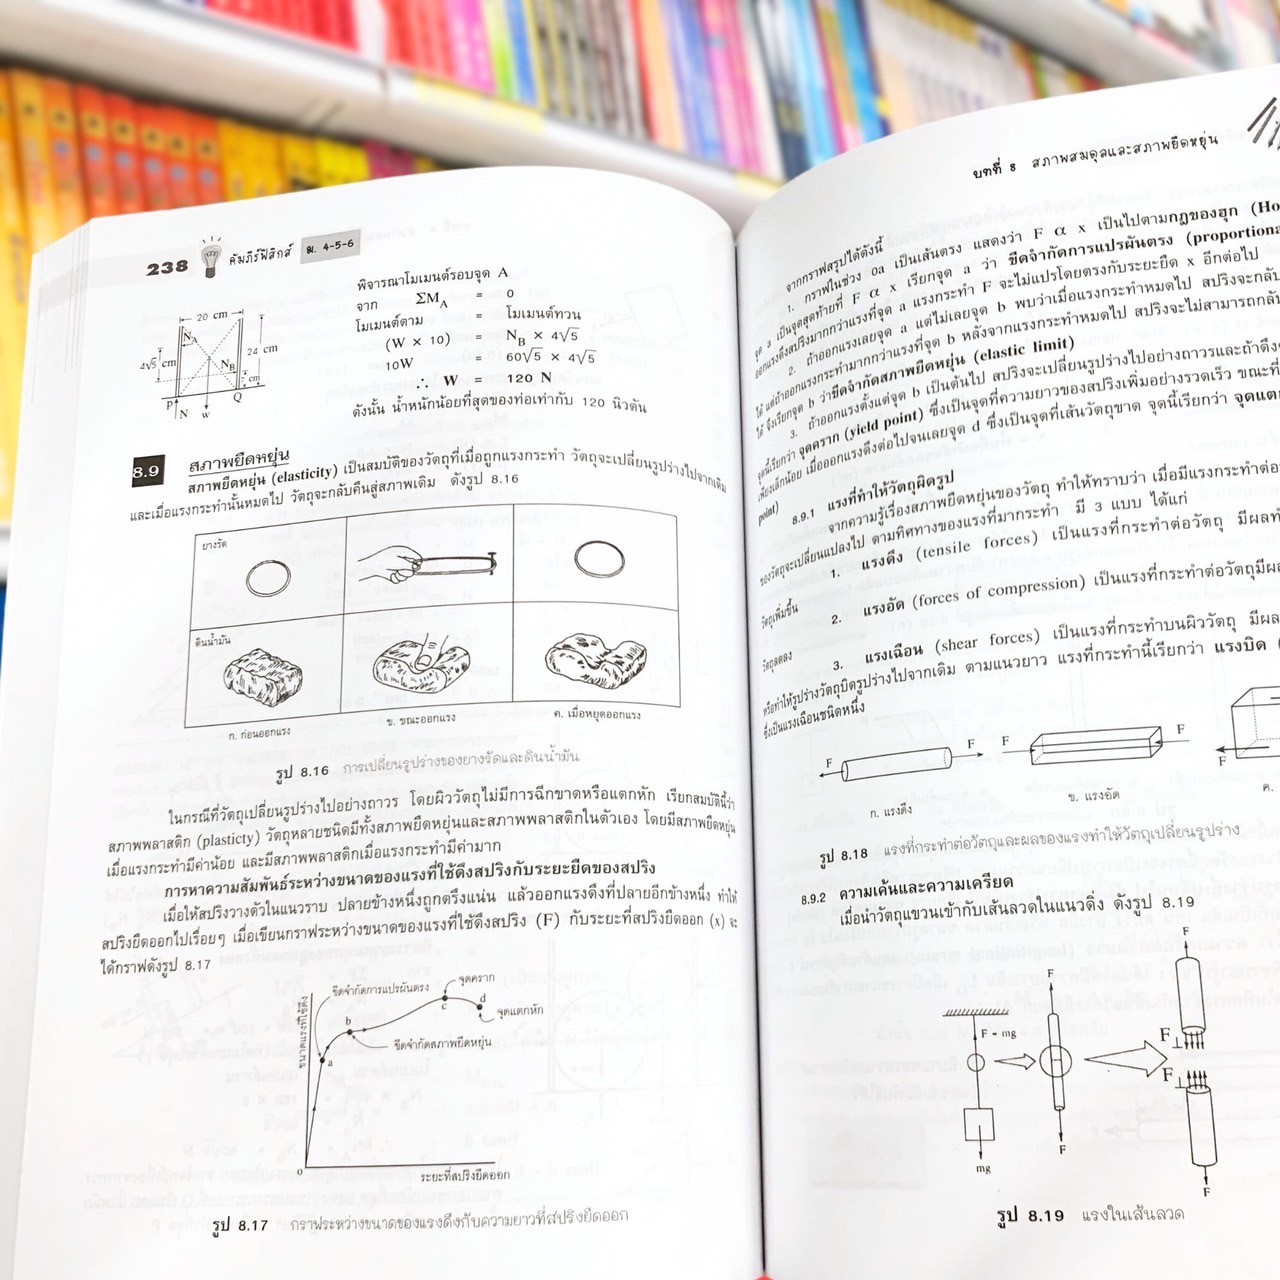 238 คัมภีร์ฟิสิกส์ ม. 4-5-6
พิจารณาโมเมนต์รอบจุด A
จาก ΣM_A = 0
โมเมนต์ตาม = โมเมนต์ทวน
(W × 10) = N_B × 4√5
10W = 60√5 × 4√5
∴ W = 120 N
ดังนั้น น้ำหนักน้อยที่สุดของท่อเท่ากับ 120 นิวตัน
20 cm
N_A
4√5 cm
N_B
24 cm
7 cm
P
Q
N
W
8.9 สภาพยืดหยุ่น
สภาพยืดหยุ่น (elasticity) เป็นสมบัติของวัตถุที่เมื่อถูกแรงกระทำ วัตถุจะเปลี่ยนรูปร่างไปจากเดิม
และเมื่อแรงกระทำนั้นหมดไป วัตถุจะกลับคืนสู่สภาพเดิม ดังรูป 8.16
ยางรัด
ดินน้ำมัน
ก. ก่อนออกแรง
ข. ขณะออกแรง
ค. เมื่อหยุดออกแรง
รูป 8.16 การเปลี่ยนรูปร่างของยางรัดและดินน้ำมัน
ในกรณีที่วัตถุเปลี่ยนรูปร่างไปอย่างถาวร โดยผิววัตถุไม่มีการฉีกขาดหรือแตกหัก เรียกสมบัตินี้ว่า
สภาพพลาสติก (plasticty) วัตถุหลายชนิดมีทั้งสภาพยืดหยุ่นและสภาพพลาสติกในตัวเอง โดยมีสภาพยืดหยุ่น
เมื่อแรงกระทำมีค่าน้อย และมีสภาพพลาสติกเมื่อแรงกระทำมีค่ามาก
การหาความสัมพันธ์ระหว่างขนาดของแรงที่ใช้ดึงสปริงกับระยะยืดของสปริง
เมื่อให้สปริงวางตัวในแนวราบ ปลายข้างหนึ่งถูกตรึงแน่น แล้วออกแรงดึงที่ปลายอีกข้างหนึ่ง ทำให้
สปริงยืดออกไปเรื่อยๆ เมื่อเขียนกราฟระหว่างขนาดของแรงที่ใช้ดึงสปริง (F) กับระยะที่สปริงยืดออก (x) จะ
ได้กราฟดังรูป 8.17
ขนาดแรงที่ใช้ดึง
ขีดจำกัดการแปรผันตรง
จุดคราก
จุดแตกหัก
ขีดจำกัดสภาพยืดหยุ่น
a
b
c
d
0
ระยะที่สปริงยืดออก
รูป 8.17 กราฟระหว่างขนาดของแรงดึงกับความยาวที่สปริงยืดออก
บทที่ 8 สภาพสมดุลและสภาพยืดหยุ่น
จากกราฟสรุปได้ดังนี้
1. กราฟในช่วง oa เป็นเส้นตรง แสดงว่า F α x เป็นไปตามกฎของฮุก (Ho
จุด a เป็นจุดสุดท้ายที่ F α x เรียกจุด a ว่า ขีดจำกัดการแปรผันตรง (proportiona
ออกแรงดึงสปริงมากกว่าแรงที่จุด a แรงกระทำ F จะไม่แปรโดยตรงกับระยะยืด x อีกต่อไป
2. ถ้าออกแรงเลยจุด a แต่ไม่เลยจุด b พบว่าเมื่อแรงกระทำหมดไป สปริงจะกลับ
ได้ แต่ถ้าออกแรงกระทำมากกว่าแรงที่จุด b หลังจากแรงกระทำหมดไป สปริงจะไม่สามารถกลับ
ได้ จึงเรียกจุด b ว่าขีดจำกัดสภาพยืดหยุ่น (elastic limit)
3. ถ้าออกแรงตั้งแต่จุด b เป็นต้นไป สปริงจะเปลี่ยนรูปร่างไปอย่างถาวรและถ้าดึงถึง
จุดนี้เรียกว่า จุดคราก (yield point) ซึ่งเป็นจุดที่ความยาวของสปริงเพิ่มอย่างรวดเร็ว ขณะที่
เพียงเล็กน้อย เมื่อออกแรงดึงต่อไปจนเลยจุด d ซึ่งเป็นจุดที่เส้นวัตถุขาด จุดนี้เรียกว่า จุดแตก
point)
8.9.1 แรงที่ทำให้วัตถุผิดรูป
จากความรู้เรื่องสภาพยืดหยุ่นของวัตถุ ทำให้ทราบว่า เมื่อมีแรงกระทำต่อ
ของวัตถุจะเปลี่ยนแปลงไป ตามทิศทางของแรงที่มากระทำ มี 3 แบบ ได้แก่
1. แรงดึง (tensile forces) เป็นแรงที่กระทำต่อวัตถุ มีผลทำ
วัตถุเพิ่มขึ้น
2. แรงอัด (forces of compression) เป็นแรงที่กระทำต่อวัตถุมีผล
วัตถุลดลง
3. แรงเฉือน (shear forces) เป็นแรงที่กระทำบนผิววัตถุ มีผล
หรือทำให้รูปร่างวัตถุบิดรูปร่างไปจากเดิม ตามแนวยาว แรงที่กระทำนี้เรียกว่า แรงบิด (
ซึ่งเป็นแรงเฉือนชนิดหนึ่ง
F F F F F
ก. แรงดึง
ข. แรงอัด
ค.
รูป 8.18 แรงที่กระทำต่อวัตถุและผลของแรงทำให้วัตถุเปลี่ยนรูปร่าง
8.9.2 ความเค้นและความเครียด
เมื่อนำวัตถุแขวนเข้ากับเส้นลวดในแนวดิ่ง ดังรูป 8.19
F = mg
mg
F
F
F
F⊥
F⊥
F
รูป 8.19 แรงในเส้นลวด